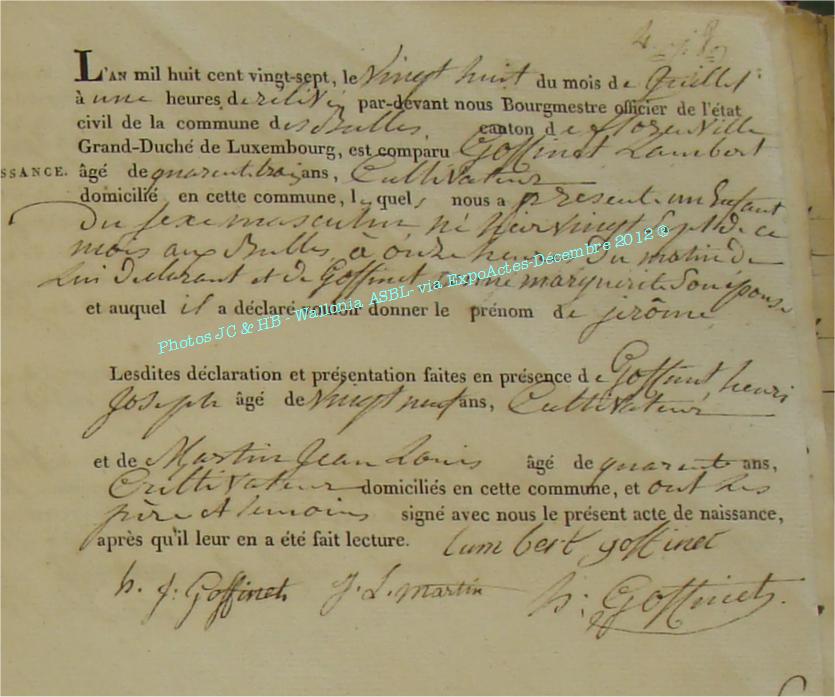 L'AN mil huit cent vingt-sept, le Vingt huit du mois de Juillet
à une heures de relevée par-devant nous Bourgmestre officier de l'état
civil de la commune des Bulles, canton de florenville
Grand-Duché de Luxembourg, est comparu Goffinet Lambert
SSANCE. âgé de quarent trois ans, Cultivateur
domicilié en cette commune, lequel nous a présenté un Enfant
Du sexe masculin né hier vingt Sept de ce
mois aux Bulles, à onze heures Du matin De
Lui Déclarant et de Goffinet marguerite Son épouse
et auquel il a déclaré vouloir donner le prénom de jérôme
Lesdites déclaration et présentation faites en présence de Goffinet henri
Joseph âgé de vingt neuf ans, Cultivateur
et de Martin Jean Louis âgé de quarente ans,
Cultivateur domiciliés en cette commune, et ont Les
père et temoins signé avec nous le présent acte de naissance,
après qu'il leur en a été fait lecture. lambert goffinet
h. j. Goffinet J. L. martin h: Goffinet
Photos JC & HB - Wallonia ASBL- via ExpoActes-Décembre 2012 ®